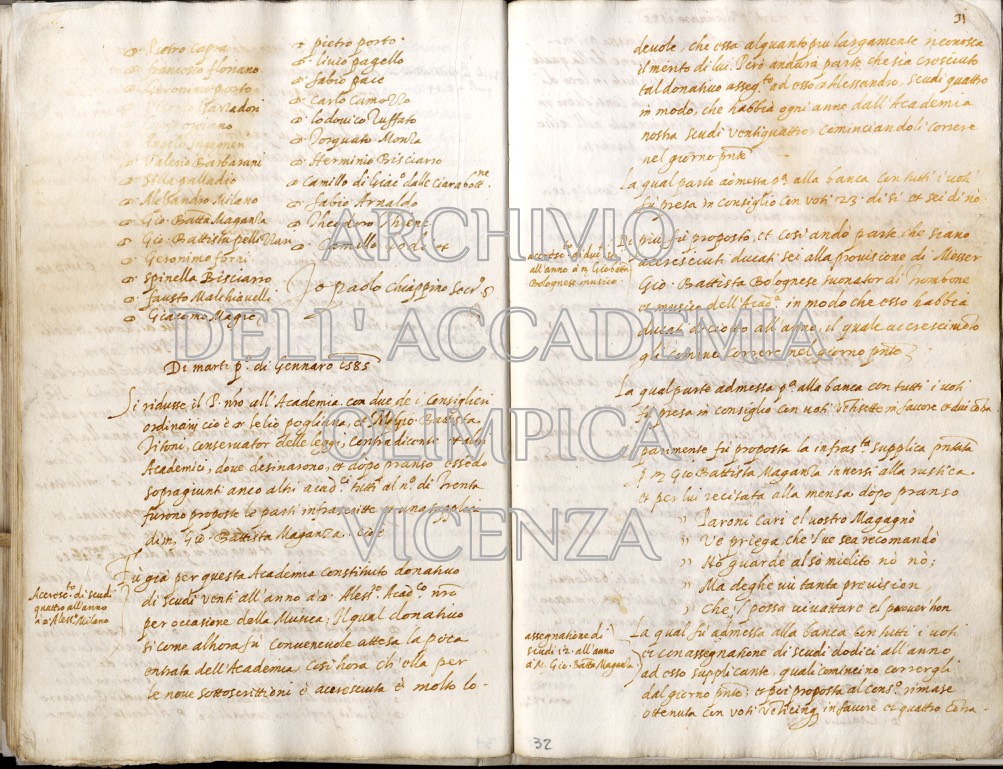 Pietro Capra
Francesco floriano
Hieronimo porto
Angelo Ingegneri
Valerio Barbarani
Silla palladio
Alessandro Milano
Gio: Batta Maganza
Gio: Battista pello
Geronimo forni
Spinella Bisciarro
fausto Malchiavelli
Giacomo Magrè
pietro porto.
livio pagello
fabio pace
Carlo Camozzo
lodovico Ruffato
Torquato Monza
Herminio Bisciarro
Camillo di Giac.o dalle
fabio Arnaldo
Theodoro Thiene
Camillo
Io paolo Chiappino Secr.o
Di marti p.o di Gennaro 1585
Si ridusse il P. nro all'Academia con due de i Consiglieri
ordinarij cioè lelio pogliana, et Gio: Battista
Titoni, Conservator delle leggi, Contradicente et altri
Academici, dove desinarono, et dopo pranso essendo
sopragiunti anco altri acad.ci tutti al n.o di trenta
furono proposte le parti infrascritte et una supplica
di m. Gio: Battista Maganza. cioè
Accresc.to di scudi
quattro all'anno
a Aless.o Milano
Fù già per questa Academia constituito donativo
di scudi venti all'anno a Aless.o Acad.co nro
per occasione della Musica; Il qual donativo
si come alhora fù convenevole attesa la poca
entrata dell'Academia Cosi hora ch'ella per
le nove sottoscrittioni è accresciuta è molto lo-
31
devole, che essa alquanto piu largamente riconosca
il merito di lui. Però andarà parte che sia cresciuto
tal donativo asseg.to ad esso Alessandro, scudi quattro
in modo, che habbia ogni anno dall'Academia
nostra scudi ventiquattro, cominciandoli correre
nel giorno pnte
La qual parte admessa p.a alla banca con tutti i voti
fù presa in consiglio con voti 23. di sì et sei di nò
accresc.to di duc.ti sei
all'anno a m Giobatta
Bolognese musico.
Di più fù proposto, et cosi andò parte che siano
accresciuti ducati sei alla provisione di Messer
Gio: Battista Bolognese suonator di trombone
et musico dell'Acad.a in modo che esso habbia
ducati dicioto all'anno, il quale accrescim.to
gli comincia correre nel giorno pnte
La qual parte admessa p.a alla banca con tutti i voti
fù presa in consiglio con voti vintisette in favore et dui contra
parimente fù proposta la infras.ta supplica pntata
p m Gio Battista Maganza in versi alla rustica
et per lui recitata alla mensa dopo pranso
" Paroni cari el vostro Magagnò
" Ve priega che l've sea recomandò
" Nò guardè al so mielito nò nò;
" Ma deghe vù tanta prevision
" Che'l possa vivattare el poverhon
assegnatione di
scudi 12. all'anno
a M. Gio: Batta Maganza
La qual fù admessa alla banca con tutti i voti
con assegnatione di scudi dodici all'anno
ad esso supplicante, quali comincino corrergli
dal giorno pnte; et poi proposta al Cons.o rimase
ottenuta con voti in favore et quattro contra-
32
ARCHIVIO
DELL'ACCADEMIA
OLIMPICA
VICENZA